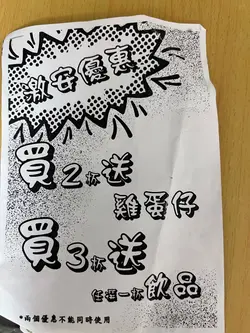 激安優惠
買2杯送
雞蛋仔
買3杯送
任選一杯飲品
*兩個優惠不能同時使用